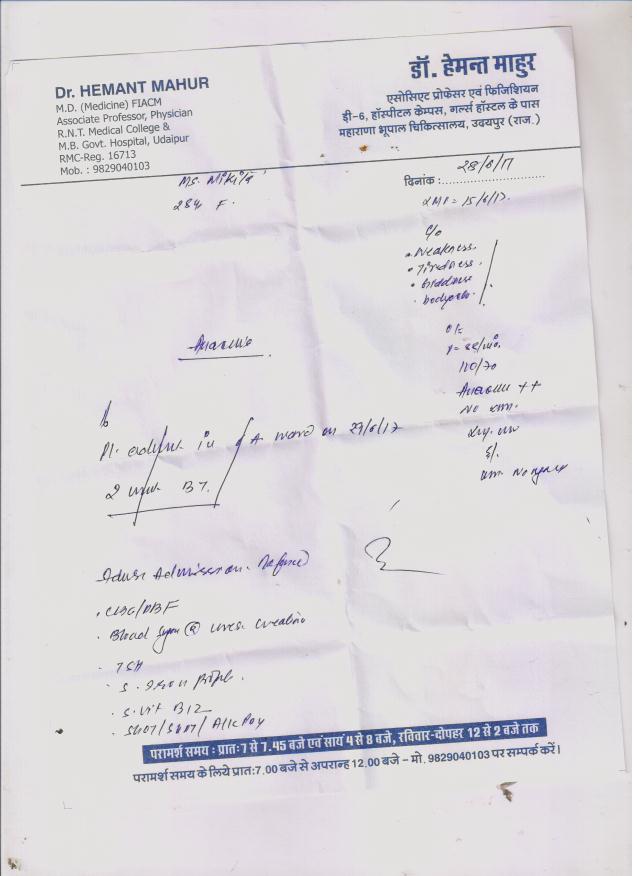 Dr. HEMANT MAHUR
M.D. (Medicine) FIACM
Associate Professor, Physician
R.N.T. Medical College &
M.B. Govt. Hospital, Udaipur
RMC-Reg. 16713
Mob. : 9829040103
डॉ. हेमन्त माहुर
एसोसिएट प्रोफेसर एवं फिजिशियन
डी-6, हॉस्पीटल केम्पस, गर्ल्स हॉस्टल के पास
महाराणा भूपाल चिकित्सालय, उदयपुर (राज.)
दिनांक : 28/6/17
Ms.
28y F.
LMP = 15/6/17
C/o
• Weakness
• Tiredness
• Giddiness
• bodyache
O/E
110/70
Anaemia ++
No
Anaemia
Pl. admit in ward on 29/6/17
2 unit BT.
Advise Admission. Refused
• CBC/PBF
• Blood Sugar @ Urea Creatinine
• TSH
• S. Iron Profile.
• S. Vit B12
• SGOT/SGPT/Alk
परामर्श समय : प्रातः 7 से 7.45 बजे एवं सायं 4 से 8 बजे, रविवार-दोपहर 12 से 2 बजे तक
परामर्श समय के लिये प्रातः 7.00 बजे से अपरान्ह 12.00 बजे – मो. 9829040103 पर सम्पर्क करें।